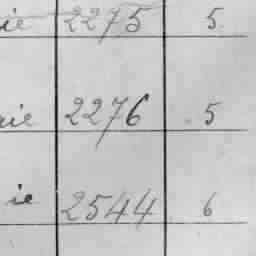 ie 2275 5
rie 2276 5
ie 2544 6